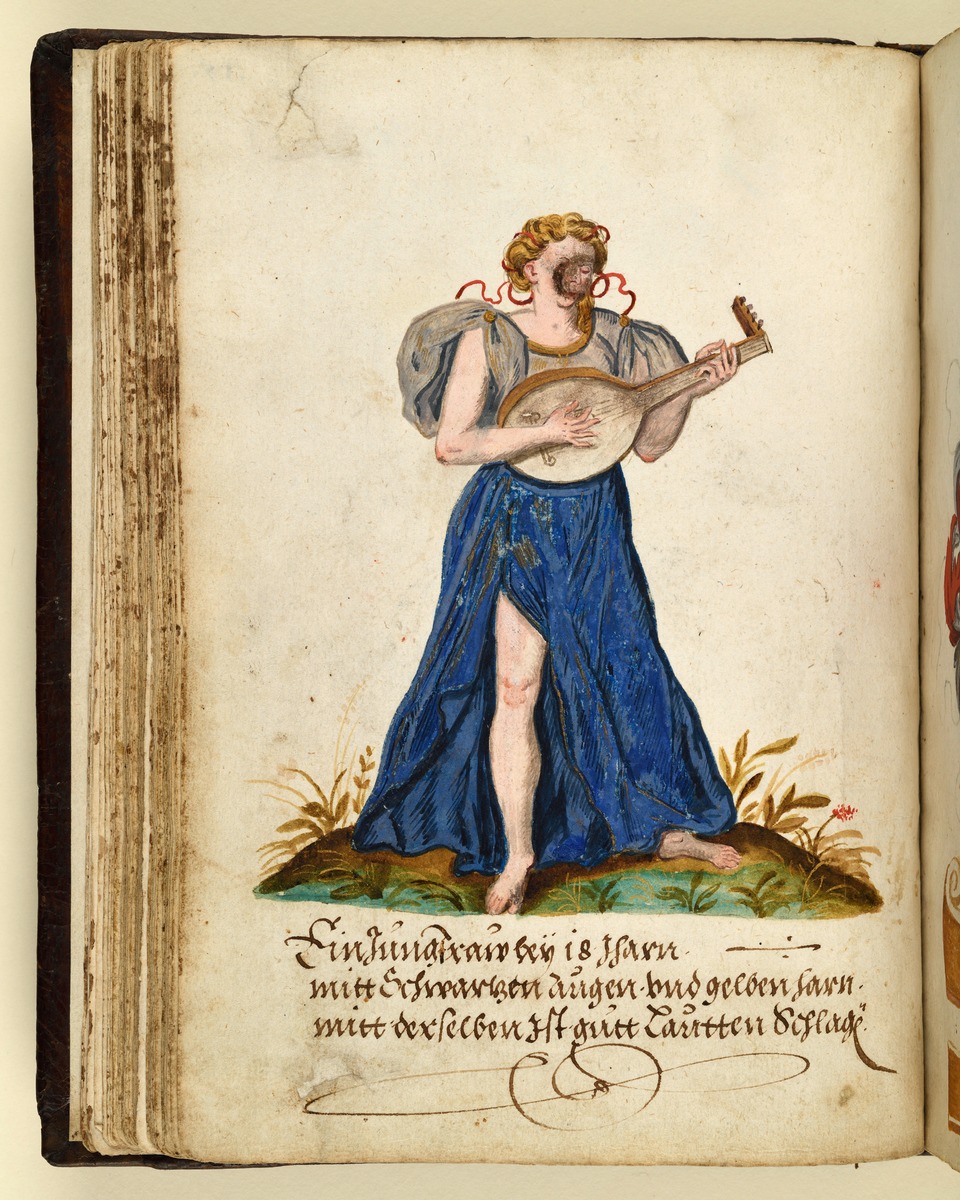 Ein Jungfraw bey 18 Jharn.
mitt Schwartzen Augen vnd gelben harn.
mitt derselben Ist gutt Lautten Schlagē.